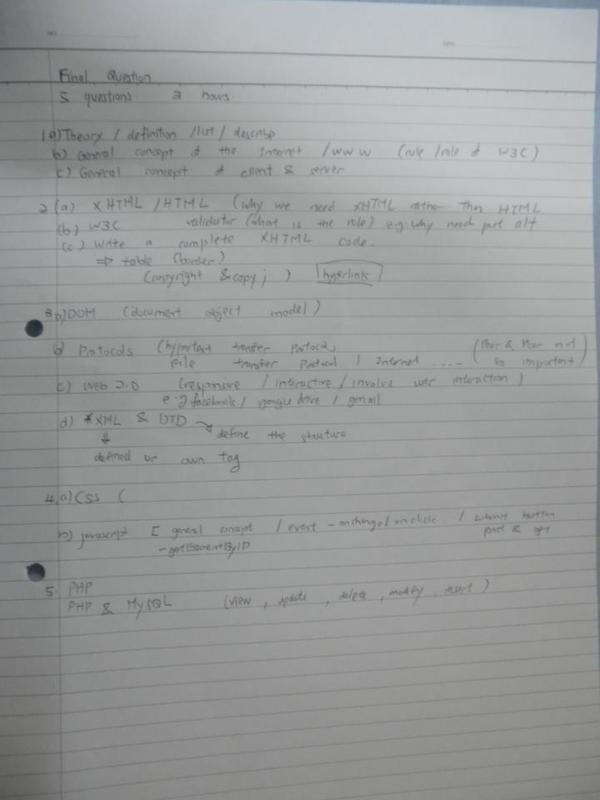 NO.
DATE
Final Question
5 questions 2 hours
1.a) Theory / definition / list / describe
b) General concept of the Internet / WWW (rule / role of W3C)
c) General concept of client & server
2.(a) XHTML / HTML (why we need XHTML rather than HTML
(b) W3C validator (what is the role) e.g. why need put alt
(c) Write a complete XHTML code.
⇒ table (border)
(copyright &copy; ) hyperlink
3. DOM (document object model)
b) Protocols (hypertext transfer protocol,
file transfer protocol / Internet .... (Peer & Peer not so important)
c) Web 2.0 (responsive / interactive / involve user interaction)
e.g facebook / google drive / gmail
d) *XML & DTD → define the structure
↓
defined our own tag
4.a) CSS (
b) javascript [ general concept / event - onchange / onclick / submit button
- getElementById
5. PHP
PHP & MySQL (view, update, delete, modify, insert)